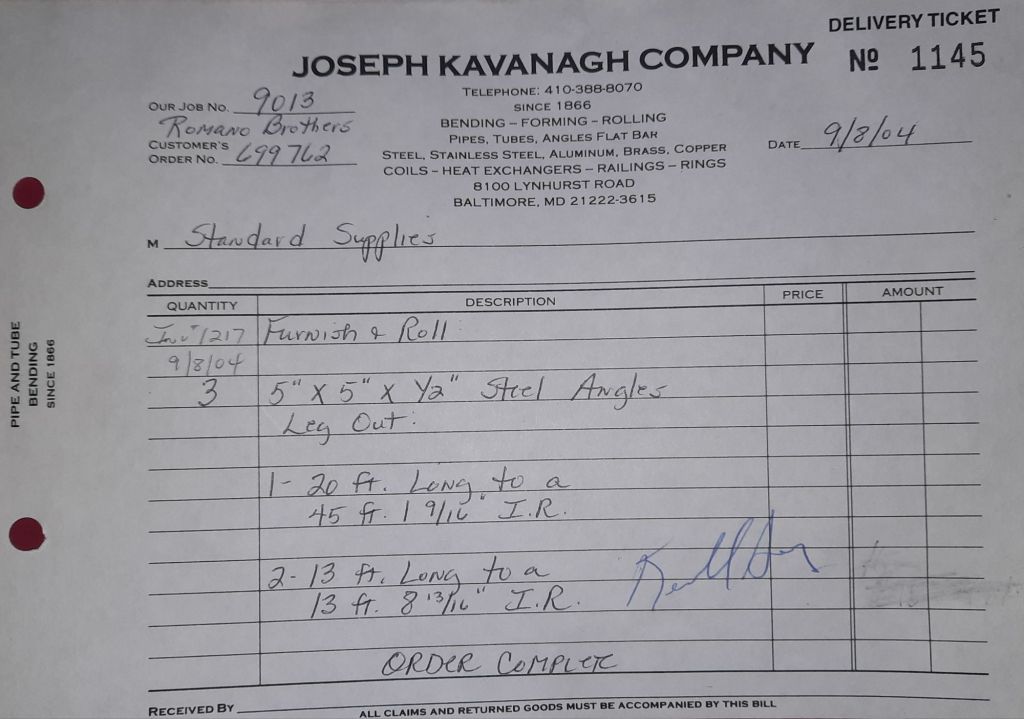 DELIVERY TICKET
JOSEPH KAVANAGH COMPANY
Nº 1145
TELEPHONE: 410-388-8070
SINCE 1866
BENDING – FORMING – ROLLING
PIPES, TUBES, ANGLES FLAT BAR
STEEL, STAINLESS STEEL, ALUMINUM, BRASS, COPPER
COILS – HEAT EXCHANGERS – RAILINGS – RINGS
8100 LYNHURST ROAD
BALTIMORE, MD 21222-3615
OUR JOB NO. 9013
Romano Brothers
CUSTOMER'S
ORDER NO. 699762
DATE 9/8/04
M Standard Supplies
ADDRESS
QUANTITY DESCRIPTION PRICE AMOUNT
Inv# 1217 Furnish & Roll
9/8/04
3 5" X 5" X 1/2" Steel Angles
Leg Out:
1- 20 ft. Long to a
45 ft. 1 9/16" I.R.
2- 13 ft. Long to a
13 ft. 8 13/16" I.R.
ORDER COMPLETE
RECEIVED BY
ALL CLAIMS AND RETURNED GOODS MUST BE ACCOMPANIED BY THIS BILL
PIPE AND TUBE
BENDING
SINCE 1866